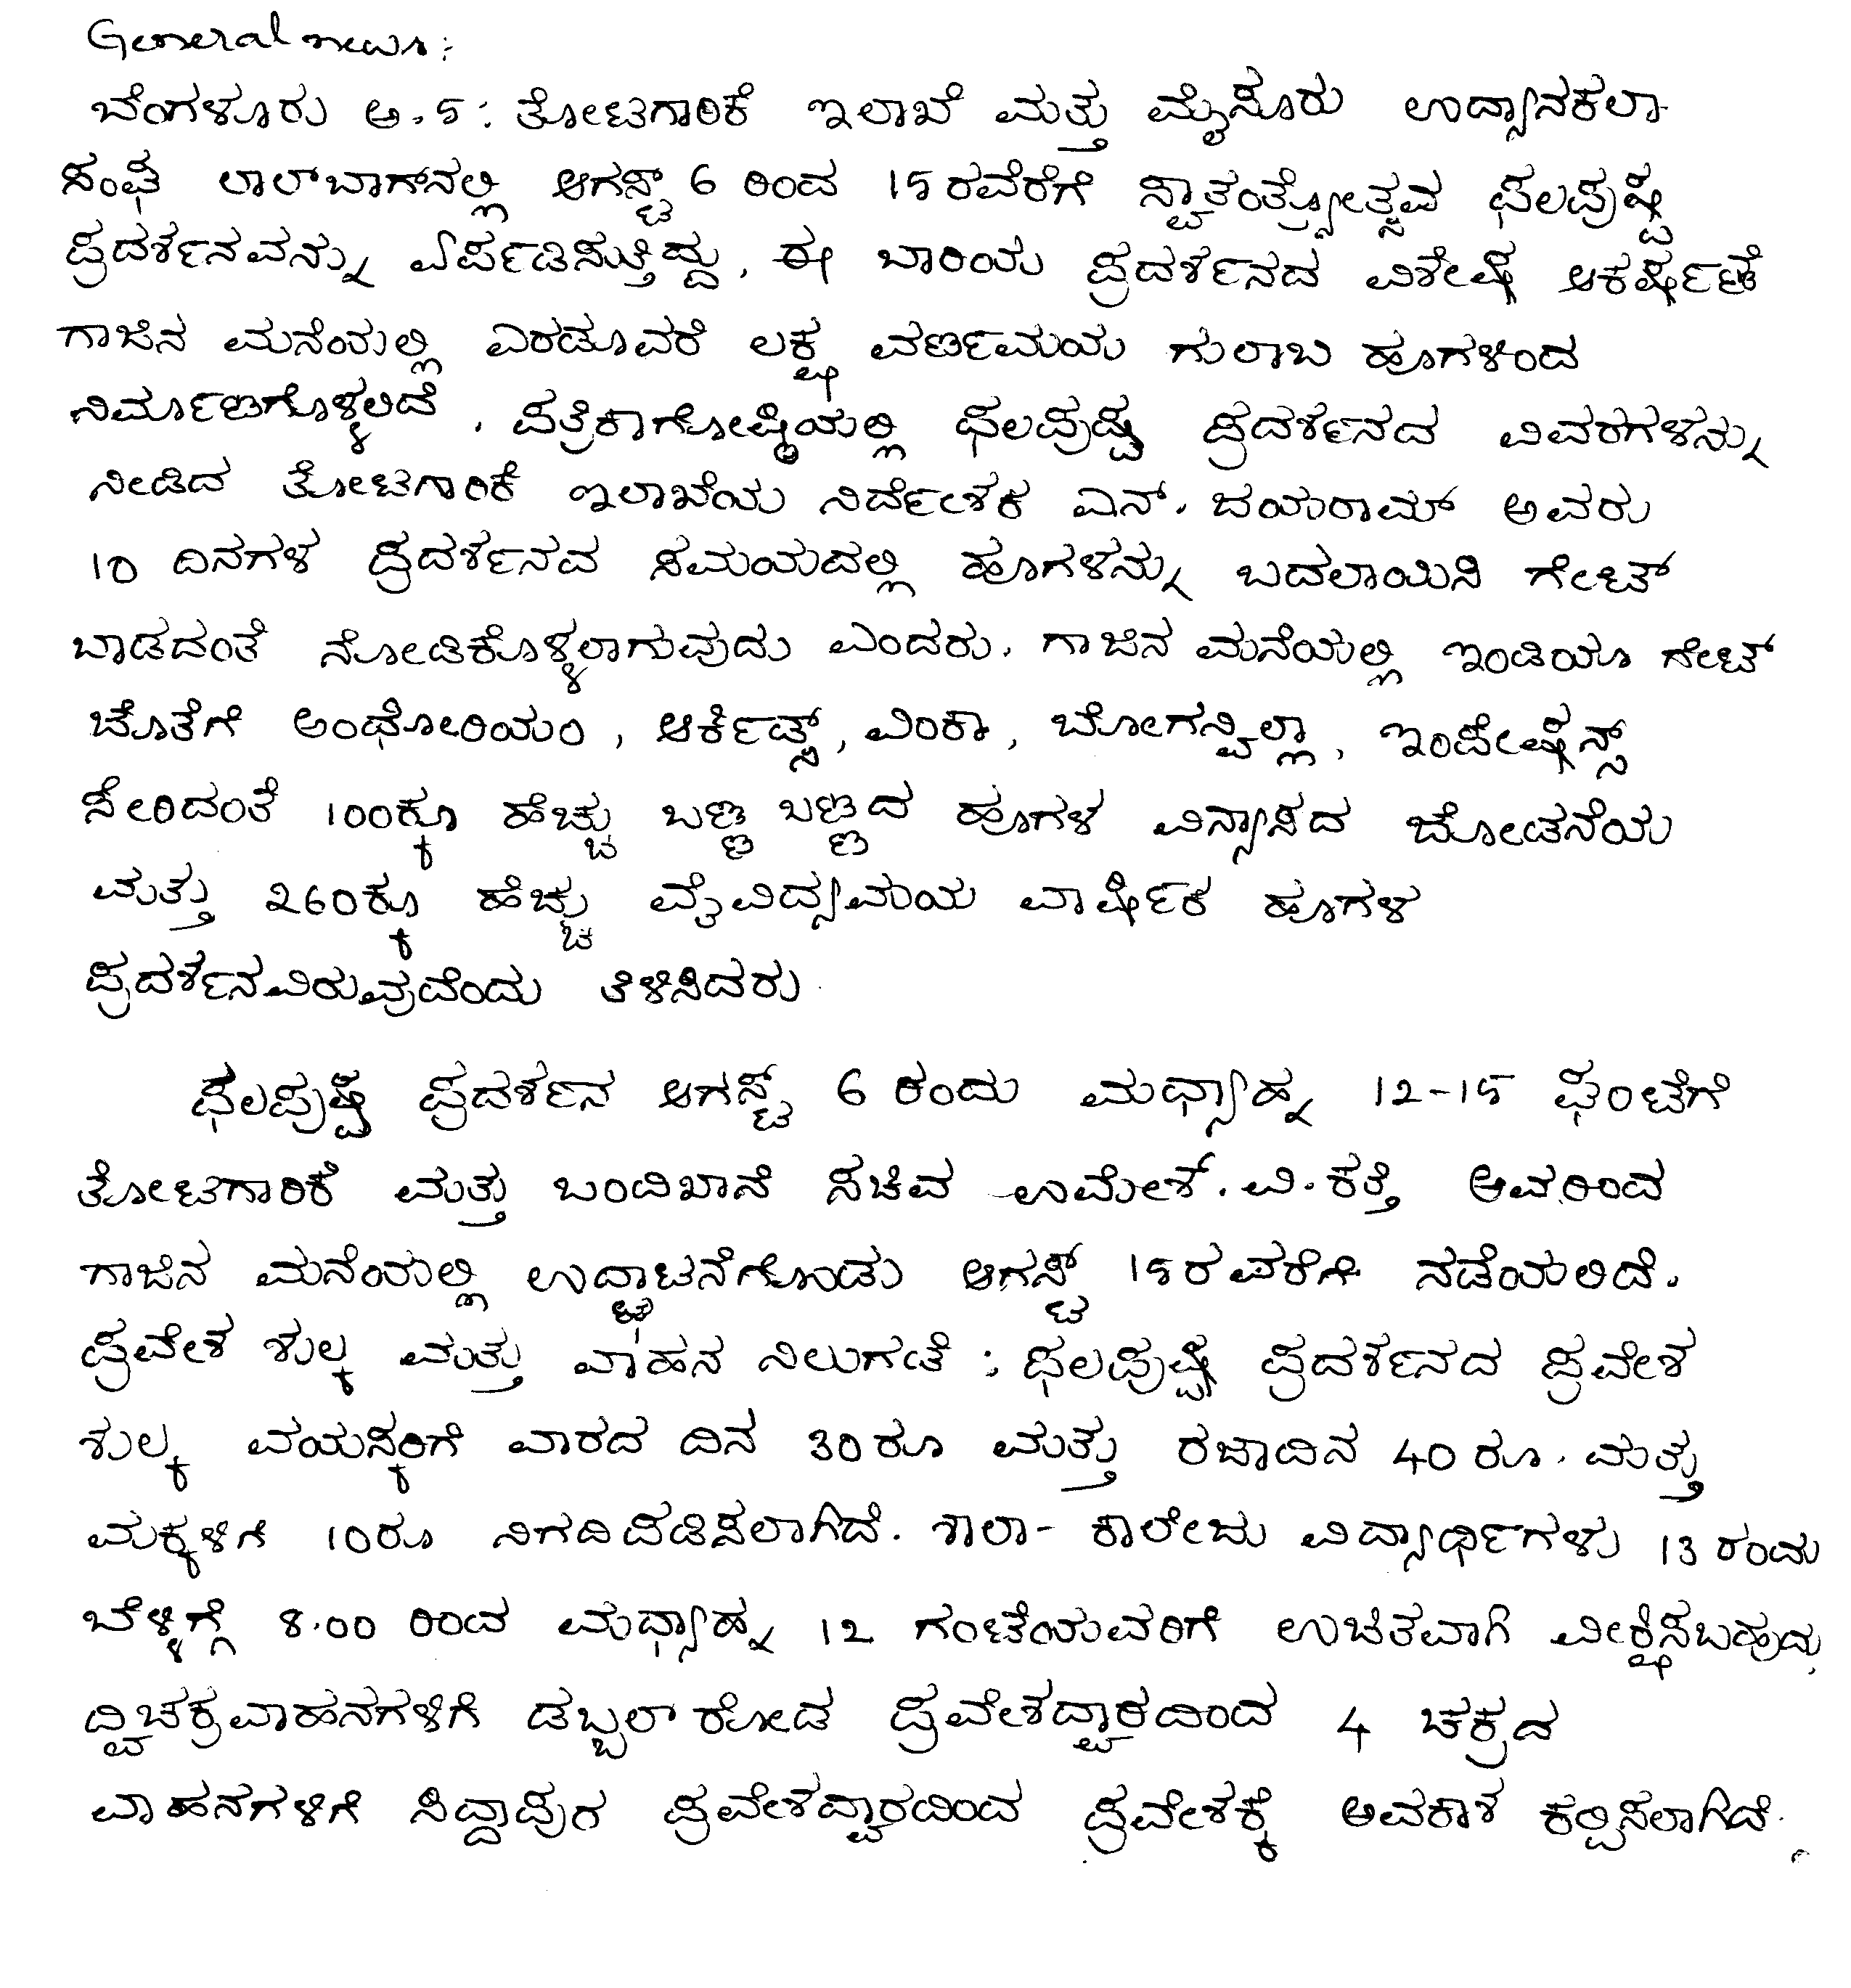 General news:
ಬೆಂಗಳೂರು ಆ.5: ತೋಟಗಾರಿಕೆ ಇಲಾಖೆ ಮತ್ತು ಮೈಸೂರು ಉದ್ಯಾನಕಲಾ
ಸಂಘ ಲಾಲ್‌ಬಾಗ್‌ನಲ್ಲಿ ಆಗಸ್ಟ್ 6 ರಿಂದ 15 ರವೆರೆಗೆ ಸ್ವಾತಂತ್ರ್ಯೋತ್ಸವ ಫಲಪುಷ್ಪ
ಪ್ರದರ್ಶನವನ್ನು ಏರ್ಪಡಿಸುತ್ತಿದ್ದು, ಈ ಬಾರಿಯ ಪ್ರದರ್ಶನದ ವಿಶೇಷ ಆಕರ್ಷಣೆ
ಗಾಜಿನ ಮನೆಯಲ್ಲಿ ಎರಡೂವರೆ ಲಕ್ಷ ವರ್ಣಮಯ ಗುಲಾಬ ಹೂಗಳಿಂದ
ನಿರ್ಮಾಣಗೊಳ್ಳಲಿದೆ. ಪತ್ರಿಕಾಗೋಷ್ಠಿಯಲ್ಲಿ ಫಲಪುಷ್ಪ ಪ್ರದರ್ಶನದ ವಿವರಗಳನ್ನು
ನೀಡಿದ ತೋಟಗಾರಿಕೆ ಇಲಾಖೆಯ ನಿರ್ದೇಶಕ ಎನ್. ಜಯರಾಮ್ ಅವರು
10 ದಿನಗಳ ಪ್ರದರ್ಶನದ ಸಮಯದಲ್ಲಿ ಹೂಗಳನ್ನು ಬದಲಾಯಿಸಿ ಗೇಟ್
ಬಾಡದಂತೆ ನೋಡಿಕೊಳ್ಳಲಾಗುವುದು ಎಂದರು. ಗಾಜಿನ ಮನೆಯಲ್ಲಿ ಇಂಡಿಯಾ ಗೇಟ್
ಜೊತೆಗೆ ಅಂಥೋರಿಯಂ, ಆರ್ಕಿಡ್ಸ್, ವಿಂಕಾ, ಬೋಗನ್ವಿಲ್ಲಾ, ಇಂಪೇಷೆನ್ಸ್
ಸೇರಿದಂತೆ 100ಕ್ಕೂ ಹೆಚ್ಚು ಬಣ್ಣ ಬಣ್ಣದ ಹೂಗಳ ವಿನ್ಯಾಸದ ಜೋಡನೆಯ
ಮತ್ತು 260ಕ್ಕೂ ಹೆಚ್ಚು ವೈವಿದ್ಯಮಯ ವಾರ್ಷಿಕ ಹೂಗಳ
ಪ್ರದರ್ಶನವಿರುವುದೆಂದು ತಿಳಿಸಿದರು.
ಫಲಪುಷ್ಪ ಪ್ರದರ್ಶನ ಆಗಸ್ಟ್ 6 ರಂದು ಮಧ್ಯಾಹ್ನ 12-15 ಘಂಟೆಗೆ
ತೋಟಗಾರಿಕೆ ಮತ್ತು ಬಂದಿಖಾನೆ ಸಚಿವ ಉಮೇಶ್. ವಿ. ಕತ್ತಿ ಅವರಿಂದ
ಗಾಜಿನ ಮನೆಯಲ್ಲಿ ಉದ್ಘಾಟನೆಗೊಂಡು ಆಗಸ್ಟ್ 15ರವರೆಗೆ ನಡೆಯಲಿದೆ.
ಪ್ರವೇಶ ಶುಲ್ಕ ಮತ್ತು ವಾಹನ ನಿಲುಗಡೆ : ಫಲಪುಷ್ಪ ಪ್ರದರ್ಶನದ ಪ್ರವೇಶ
ಶುಲ್ಕ ವಯಸ್ಕರಿಗೆ ವಾರದ ದಿನ 30ರೂ ಮತ್ತು ರಜಾದಿನ 40ರೂ. ಮತ್ತು
ಮಕ್ಕಳಿಗೆ 10ರೂ ನಿಗದಿಪಡಿಸಲಾಗಿದೆ. ಶಾಲಾ- ಕಾಲೇಜು ವಿದ್ಯಾರ್ಥಿಗಳು 13 ರಂದು
ಬೆಳ್ಳಿಗ್ಗೆ 8.00 ರಿಂದ ಮಧ್ಯಾಹ್ನ 12 ಗಂಟೆಯವರಿಗೆ ಉಚಿತವಾಗಿ ವೀಕ್ಷಿಸಬಹುದು,
ದ್ವಿಚಕ್ರವಾಹನಗಳಿಗೆ ಡಬ್ಬಲ್ ರೋಡ ಪ್ರವೇಶದ್ವಾರದಿಂದ 4 ಚಕ್ರದ
ವಾಹನಗಳಿಗೆ ಸಿದ್ದಾಪುರ ಪ್ರವೇಶದ್ವಾರದಿಂದ ಪ್ರವೇಶಕ್ಕೆ ಅವಕಾಶ ಕಲ್ಪಿಸಲಾಗಿದೆ.